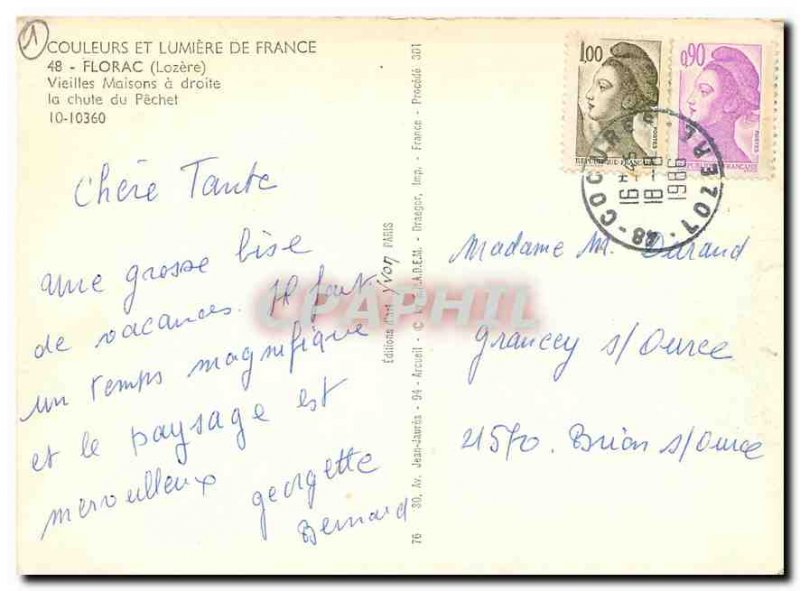 1
COULEURS ET LUMIÈRE DE FRANCE
48 - FLORAC (Lozère)
Vieilles Maisons à droite
la chute du Pêchet
10-10360
Chère Tante
une grosse bise
de vacances. Il fait
un temps magnifique
et le paysage est
merveilleux
georgette
Bernard
76 30, Av. Jean-Jaurès - 94 - Arcueil - © Draeger, Imp. - France - Procédé 301
Éditions d'art Yvon PARIS
CPAPHIL
1,00
POSTES
REPUBLIQUE FRANCAISE
0,90
POSTES
FRANÇAISE
48 - COCURES LOZERE
16 H 45
18 - 8
1986
Madame M. Durand
Grancey s/Ource
21570. Brion s/Ource